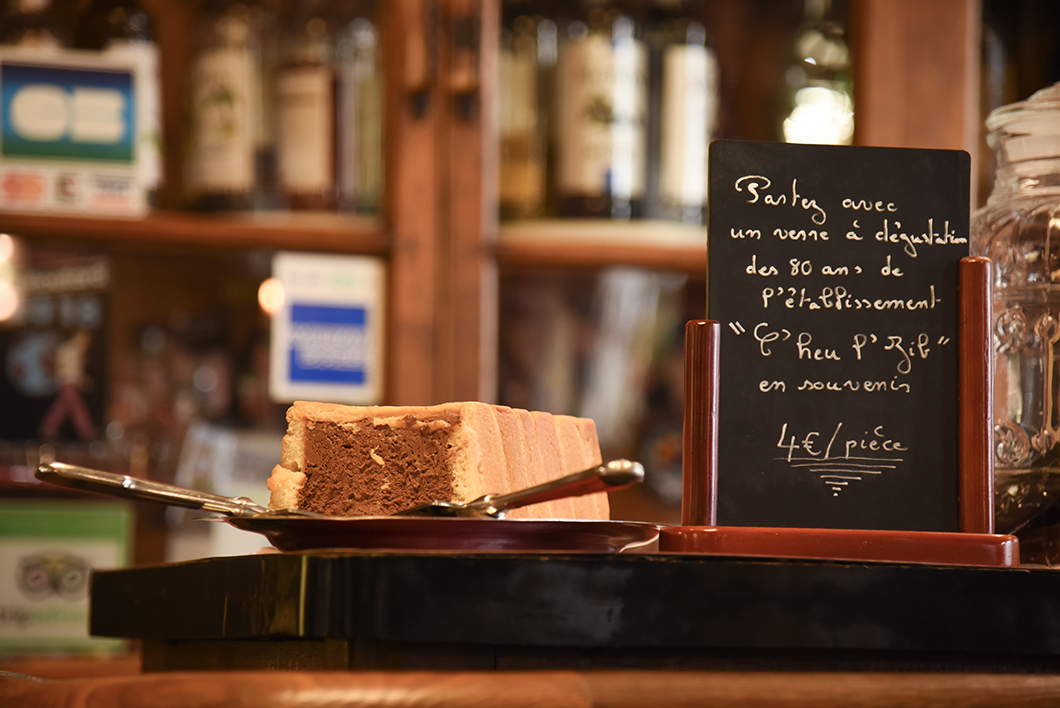 CB
Partez avec
un verre à dégustation
des 80 ans de
l'établissement
"C'heu l'Zib"
en souvenir
4€/pièce